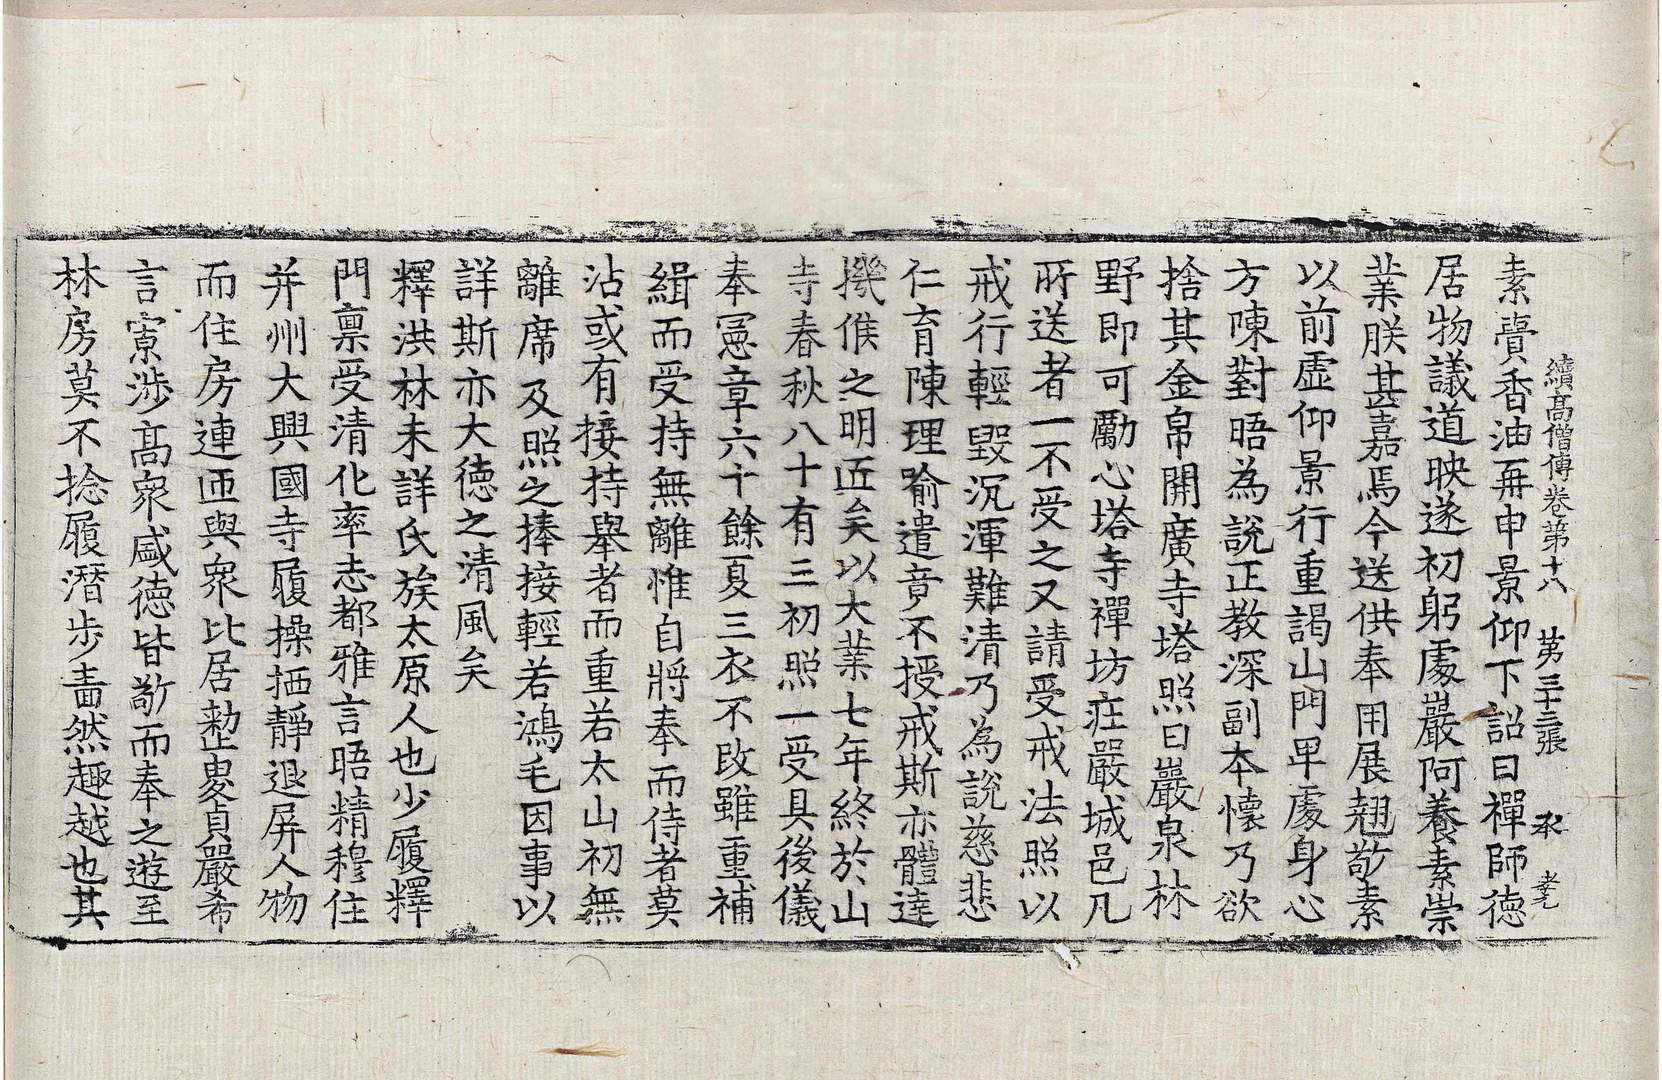 續高僧傳卷第十八　第三十二張　承　老
素賷香油再申景仰下詔曰禪師德
居物議道映遂初躬處嚴阿養素崇
業朕甚嘉焉今送供奉用展翹敬素
以前虛仰景行重謁山門卑處身心
方陳對晤為說正教深副本懷乃欲
捨其金帛開廣寺塔照曰巖泉林
野即可勵心塔寺禪坊莊嚴城邑凡
所送者一不受之又請受戒法照以
戒行輕毀沉渾難清乃為說慈悲
仁育陳理喻遣竟不授戒斯亦體達
機候之明匠矣以大業七年終於山
寺春秋八十有三初照一受具後儀
奉憲章六十餘夏三衣不改雖重補
緝而受持無離惟自將奉而侍者莫
沾或有接持舉者而重若太山初無
離席及照之捧接輕若鴻毛因事以
詳斯亦大德之清風矣
釋洪林未詳氏族太原人也少履釋
門禀受清化率志都雅言晤精穆住
并州大興國寺履操栖靜退屏人物
而住房連匝與衆比居整㕙貞嚴希
言寮涉高衆咸德皆敬而奉之遊至
林房莫不捻履潛步𦘕然趣越也其